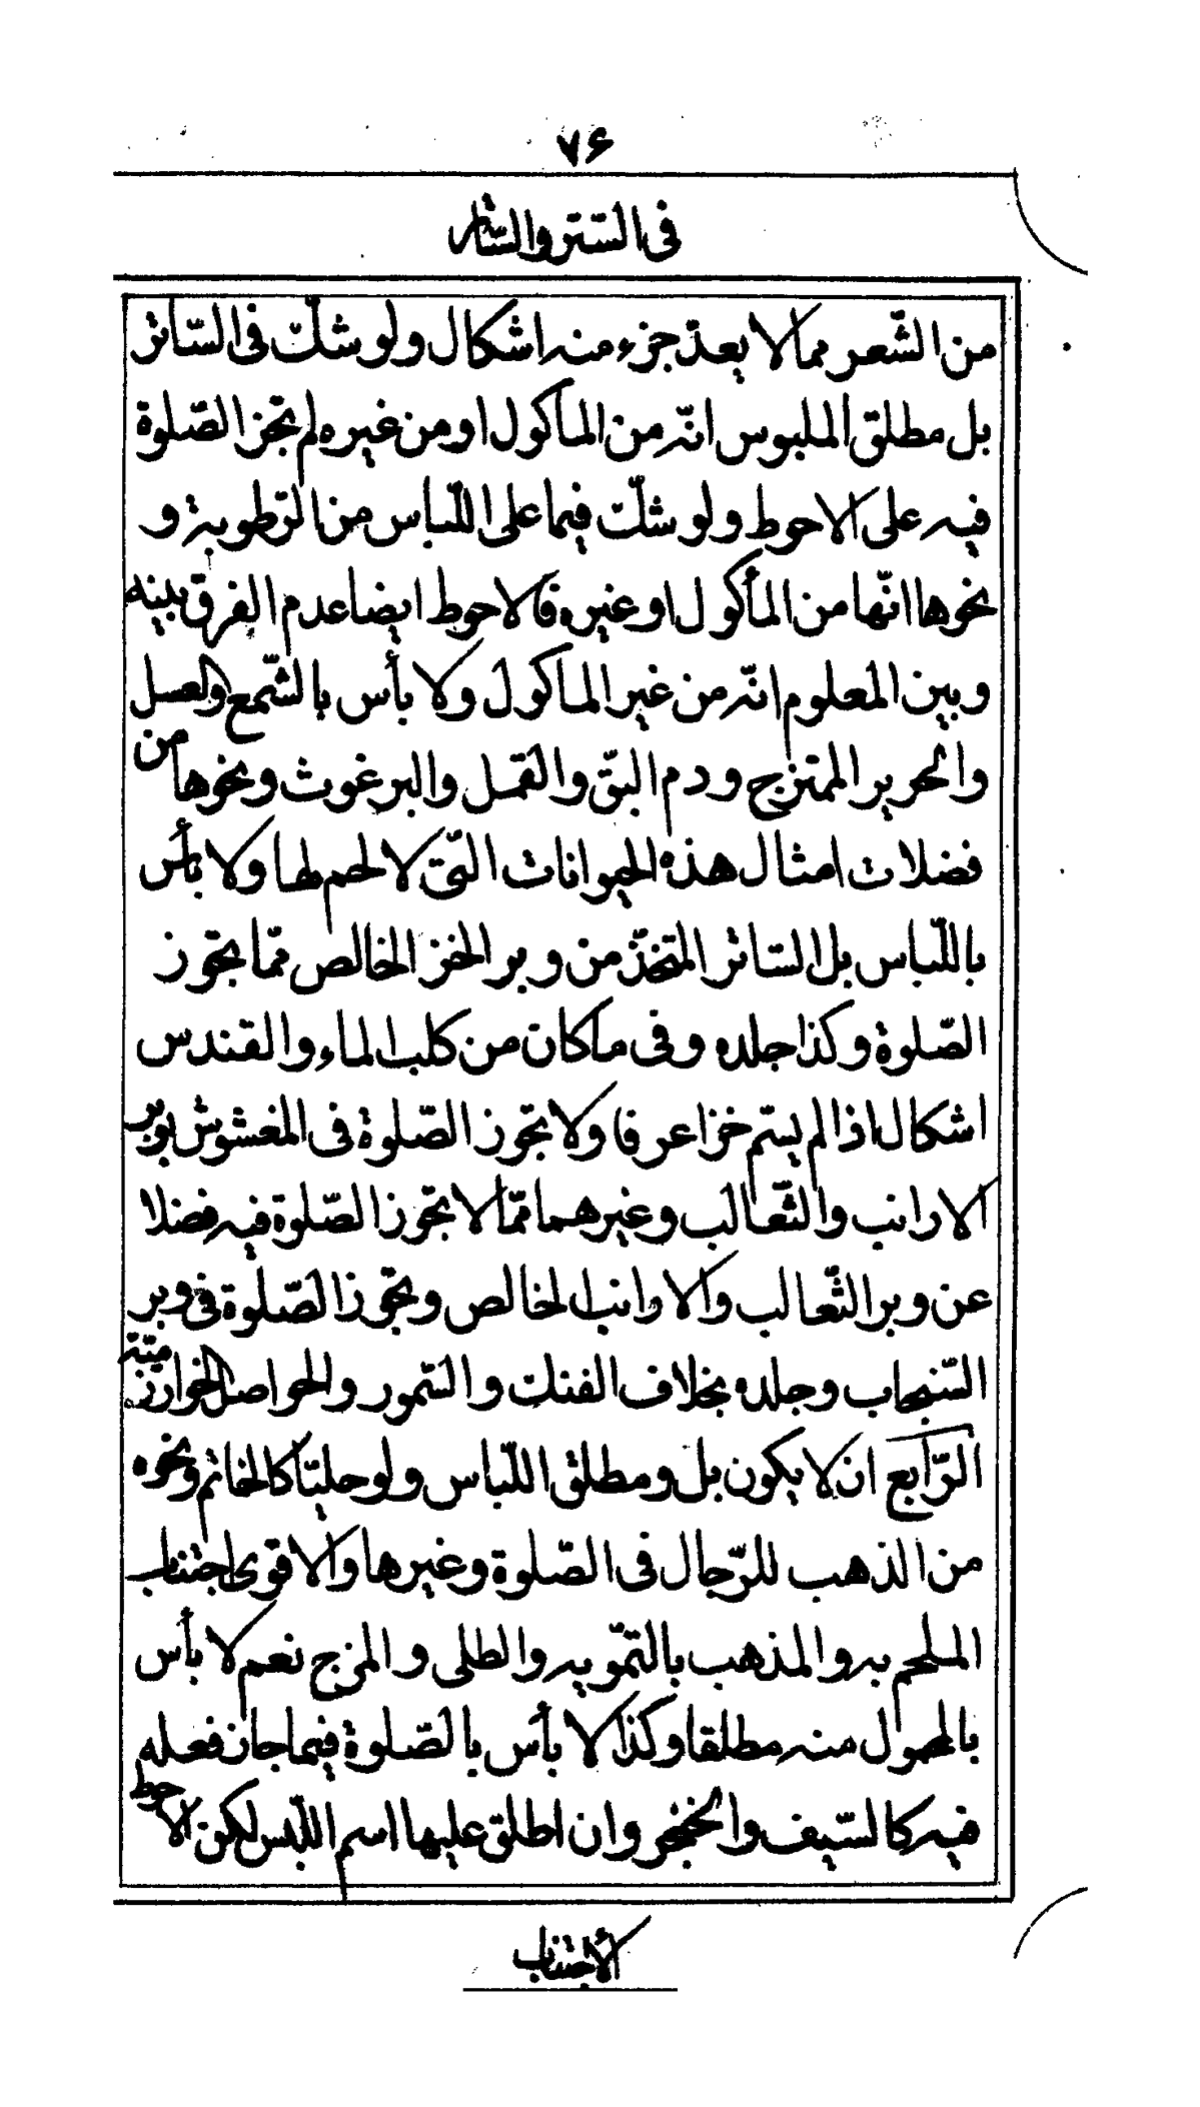 ٧۶
فى الستر والساتر
من الشّعر مما لا يعدّ جزء منه اشكال ولو شكّ فى السّاتر
بل مطلق الملبوس انّه من المأكول او من غيره لم تجز الصّلوة
فيه على الاحوط ولو شكّ فيما على اللّباس من الرّطوبة و
نحوها انّها من المأكول او غيره فالاحوط ايضا عدم الفرق بينه
وبين المعلوم انّه من غير المأكول ولا بأس بالشّمع والعسل
والحرير الممتزج ودم البقّ والقمل والبرغوث ونحوها من
فضلات امثال هذه الحيوانات الّتى لا لحم لها ولا بأس
باللّباس بل السّاتر المتّخذ من وبر الخز الخالص ممّا تجوز
الصّلوة وكذا جلده وفى ما كان من كلب الماء والقندس
اشكال اذا لم يسم خزا عرفا ولا تجوز الصّلوة فى المغشوش بوبر
الارانب والثّعالب وغيرهما ممّا لا تجوز الصّلوة فيه فضلا
عن وبر الثّعالب والارانب الخالص وتجوز الصّلوة فى وبر
السّنجاب وجلده بخلاف الفنك والسّمور والحواصل الخوارزميّة
الرّابع ان لا يكون بل ومطلق اللّباس ولو حليّا كالخاتم ونحوه
من الذهب للرّجال فى الصّلوة وغيرها والاقوى اجتناب
الملحم به والمذهب بالتمّويه والطلى والمزج نعم لا بأس
بالمحمول منه مطلقا وكذا لا بأس بالصّلوة فيما جاز فعله
فيه كالسّيف والخنجر وان اطلق عليها اسم اللّبس لكن الاحوط
الاجتناب